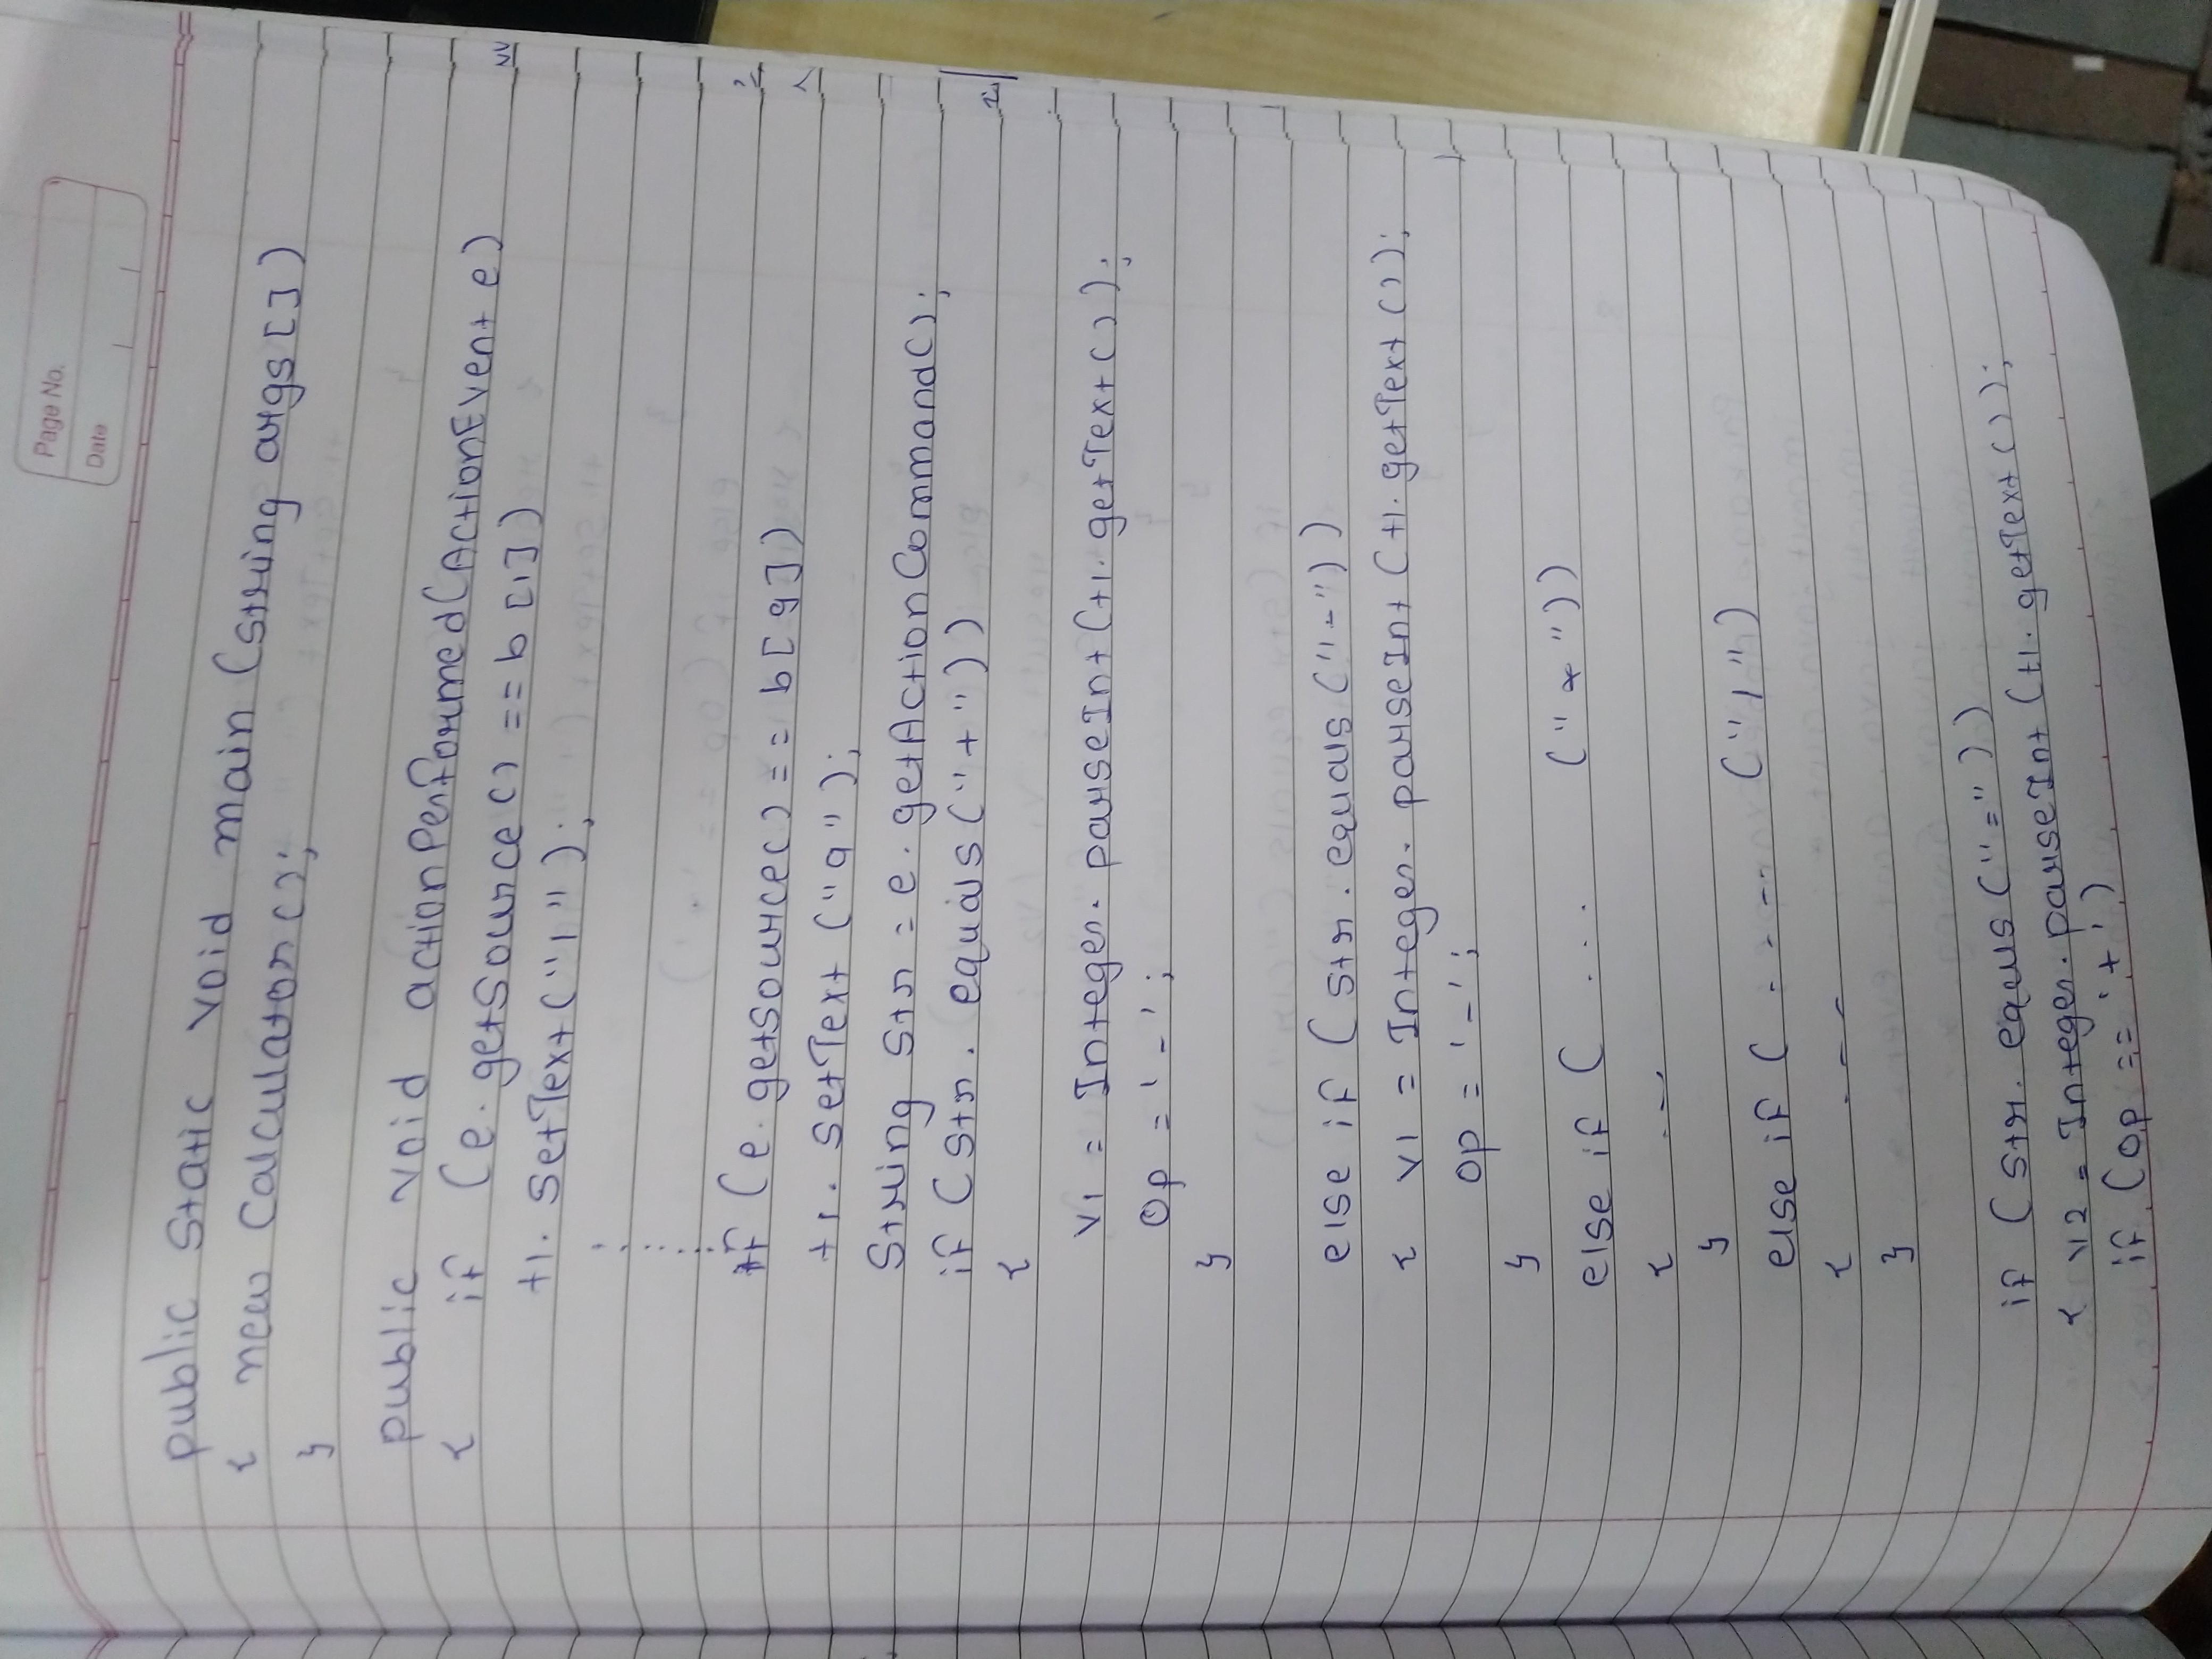 Page No.
Date
public static void main (string args[])
{ new Calculator();
}
public void actionPerformed(ActionEvent e)
{ if (e.getSource() == b[1])
t1. SetText("1");
if (e.getsource() == b[9])
t1. SetText ("9");
String Str = e.getActionCommand();
if (Str. equals("+"))
{
V1 = Integer. parseInt (t1. getText());
Op = '-';
}
else if (str. equals ("-"))
{ V1 = Integer. parseInt (t1. getText ());
op = '-';
}
else if ( ... ("*"))
{ ...
}
else if ( ---- ("/")
{ ---
}
if (str. equls ("="))
{ V2 = Integer. parseInt (t1. getText ());
if (op == '+')